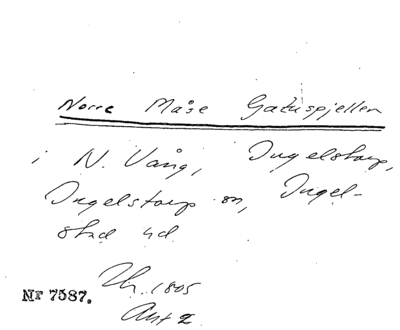 Norre Måse Gatuspjellen
i N. Vång, Ingelstorp,
Ingelstorp sn, Ingel-
stad hd
Nr 7587.
Lh. 1805
Akt 2